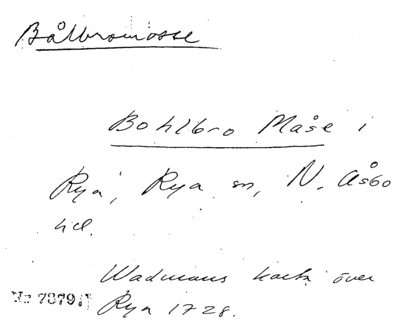 Bålbromosse
Bohlbro Måse i
Rya, Rya sn, N. Åsbo
hd.
Wadmans karta över
Nr 7879
Rya 1728.